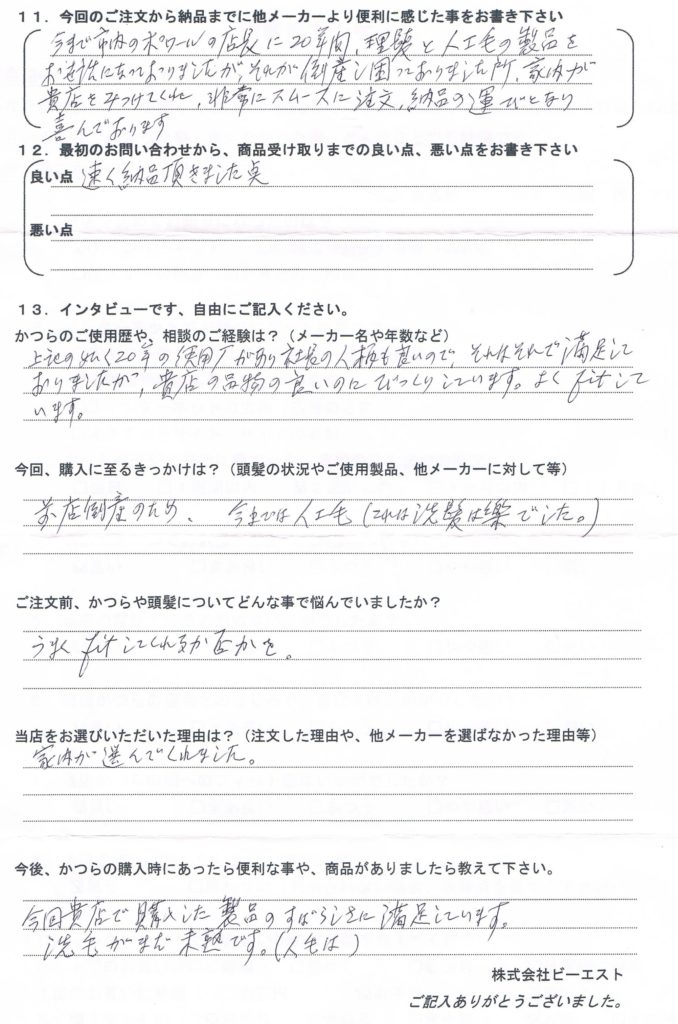 11．今回のご注文から納品までに他メーカーより便利に感じた事をお書き下さい
今まで市内のボワールの店長に20年間，理髪と人工毛の製品を
お世話になっておりましたが，それが倒産し困っておりました所，家内が
貴店をみつけてくれ，非常にスムースに注文，納品の運びとなり
喜んでおります
12．最初のお問い合わせから、商品受け取りまでの良い点、悪い点をお書き下さい
良い点 速く納品頂きました点
悪い点
13．インタビューです、自由にご記入ください。
かつらのご使用歴や、相談のご経験は？（メーカー名や年数など）
上記の如く20年の使用があり社長の人柄も良いので，それはそれで満足して
おりましたが，貴店の品物の良いのにびっくりしています。よくfitして
います。
今回、購入に至るきっかけは？（頭髪の状況やご使用製品、他メーカーに対して等）
店倒産のため、 今までは人工毛（これは洗髪は楽でした。）
ご注文前、かつらや頭髪についてどんな事で悩んでいましたか？
うまくfitしてくれるか否かを。
当店をお選びいただいた理由は？（注文した理由や、他メーカーを選ばなかった理由等）
家内が選んでくれました。
今後、かつらの購入時にあったら便利な事や、商品がありましたら教えて下さい。
今回貴店で購入した製品のすばらしさに満足しています。
洗毛がまだ未熟です。（人毛は）
株式会社ビーエスト
ご記入ありがとうございました。